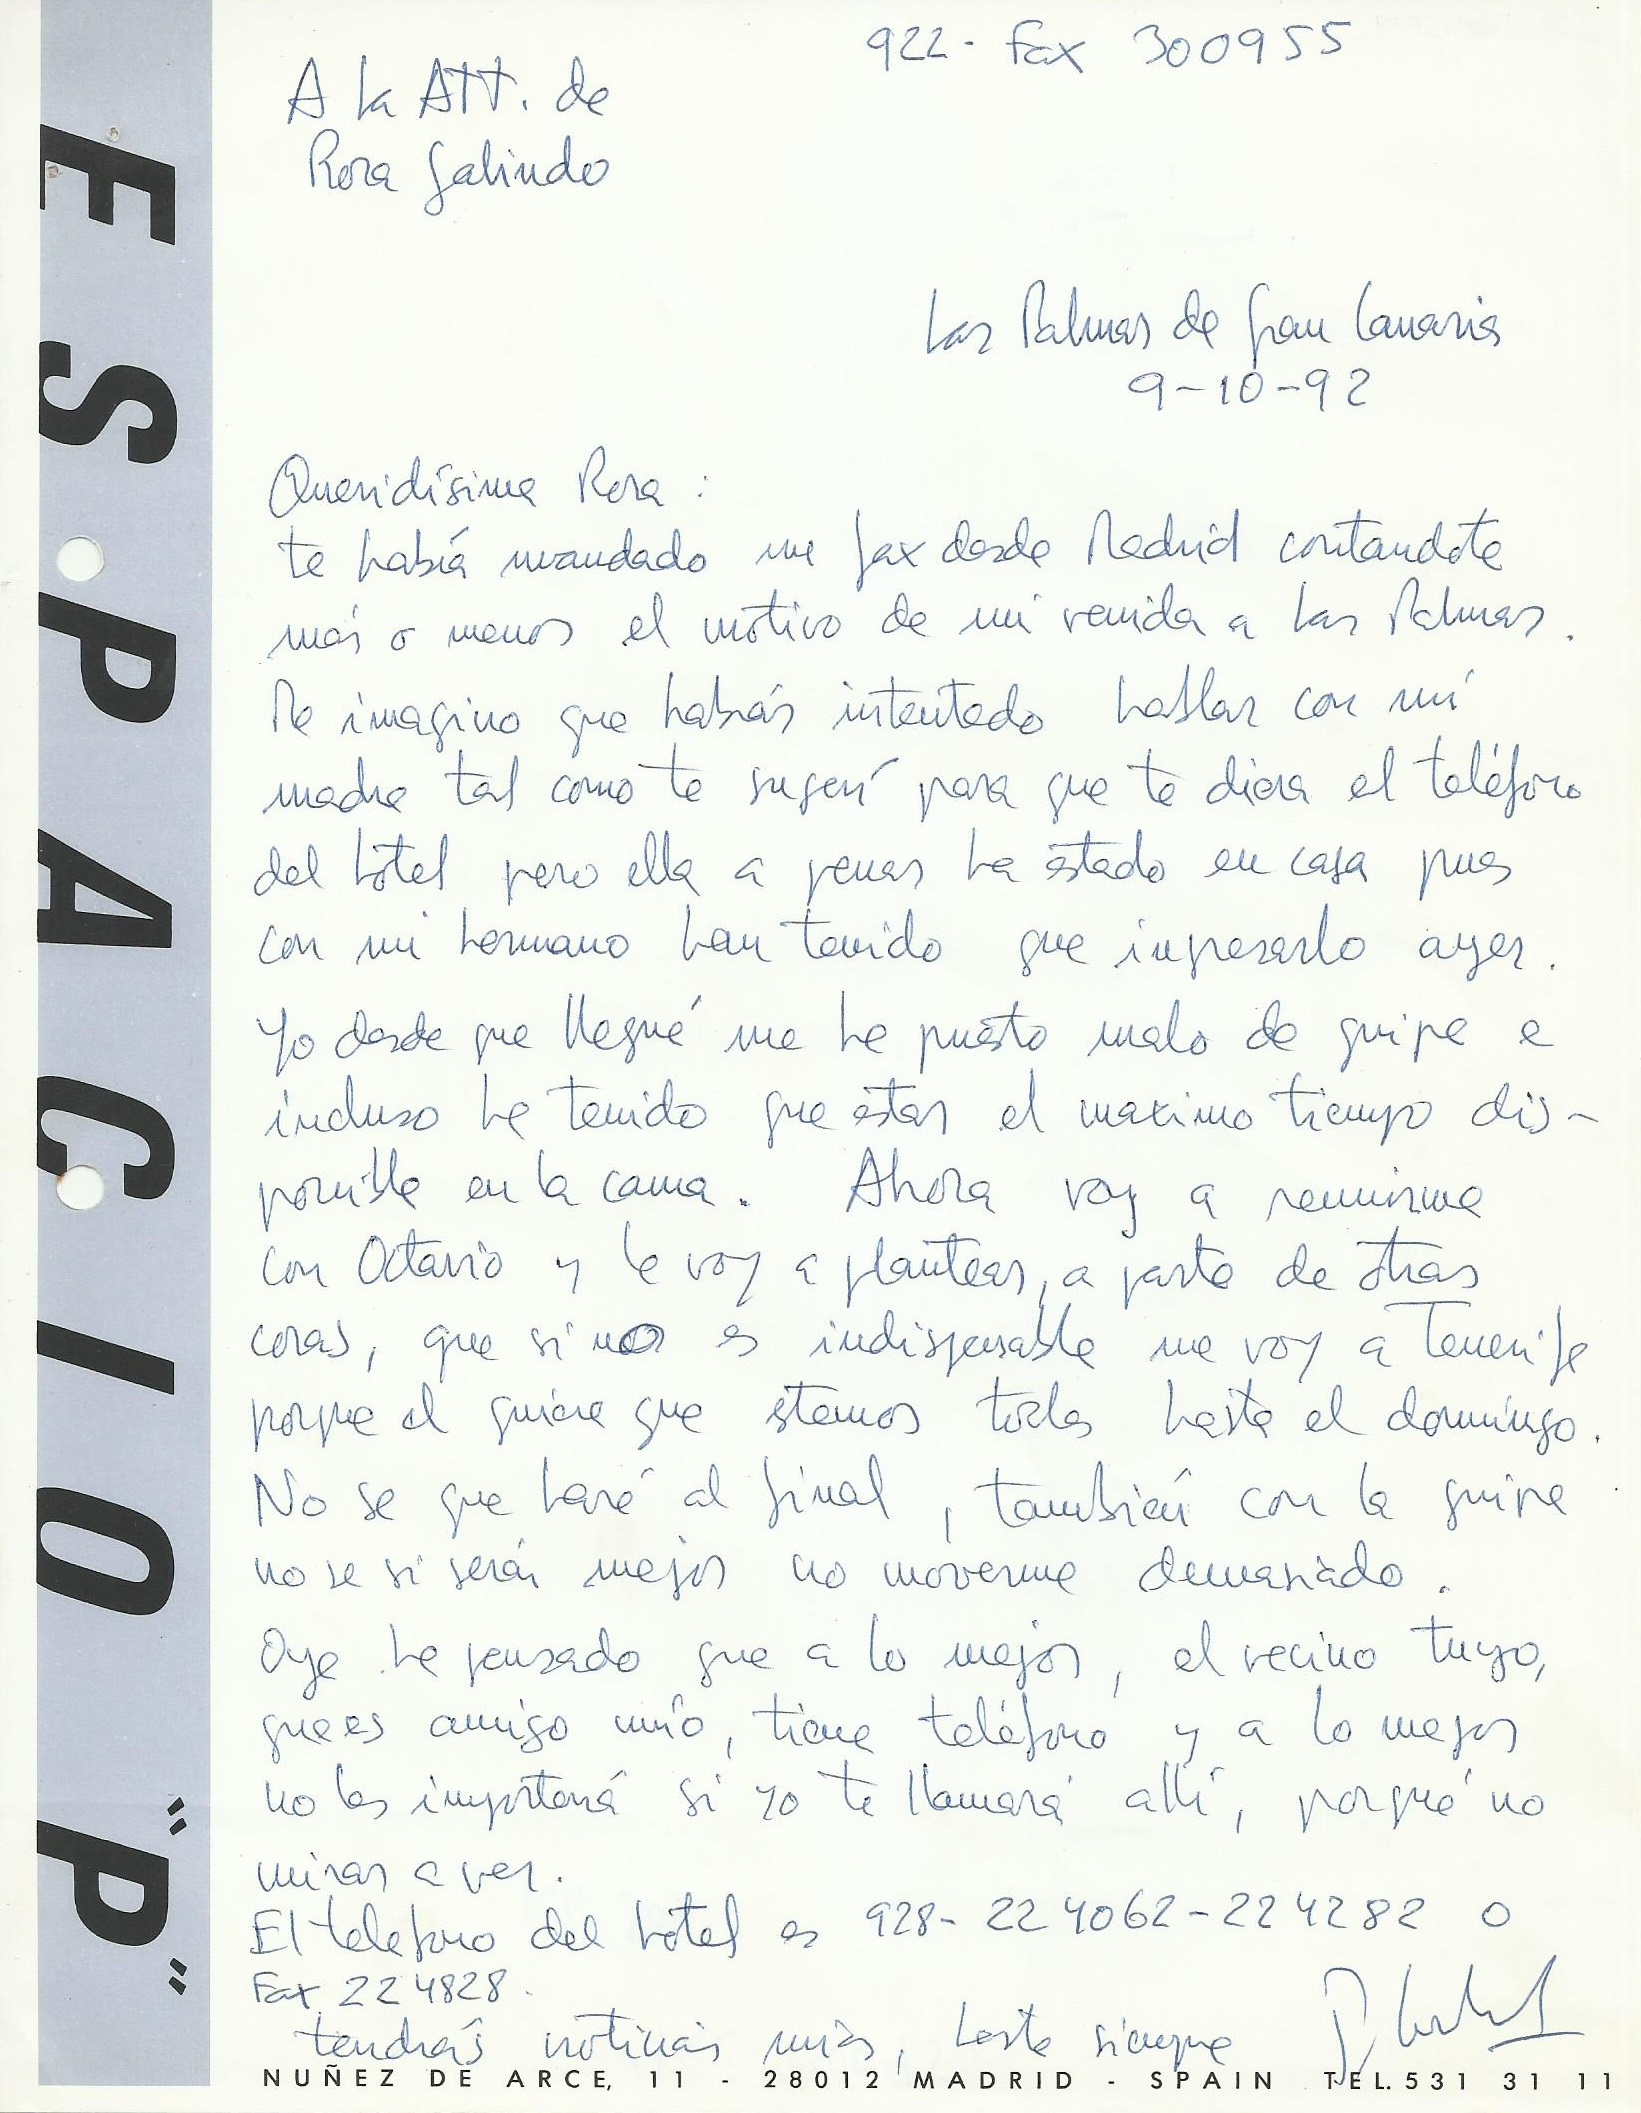 922 - Fax 300955
A la ATT. de
Rosa Galindo
Las Palmas de Gran Canaria
9-10-92
Queridísima Rosa :
te había mandado un fax desde Madrid contandote
más o menos el motivo de mi venida a Las Palmas.
Me imagino que habrás intentado hablar con mi
madre tal como te sugerí para que te diera el teléfono
del hotel pero ella a penas ha estado en casa pues
con mi hermano han tenido que ingresarlo ayer.
Yo desde que llegué me he puesto malo de gripe e
incluso he tenido que estar el maximo tiempo dis-
ponible en la cama. Ahora voy a reunirme
con Octavio y le voy a plantear, a parte de otras
cosas, que si no es indispensable me voy a Tenerife
porque el quiere que estemos todos hasta el domingo.
No se que haré al final, también con la gripe
no se si será mejor no moverme demasiado.
Oye he pensado que a lo mejor, el vecino tuyo,
que es amigo mío, tiene teléfono y a lo mejor
no les importará si yo te llamara allí, porqué no
miras a ver.
El telefono del hotel es 928-224062-224282 o
Fax 224828.
tendrás noticias mías, hasta siempre
ESPACIO "P"
NUÑEZ DE ARCE, 11 - 28012 MADRID - SPAIN TEL. 531 31 11